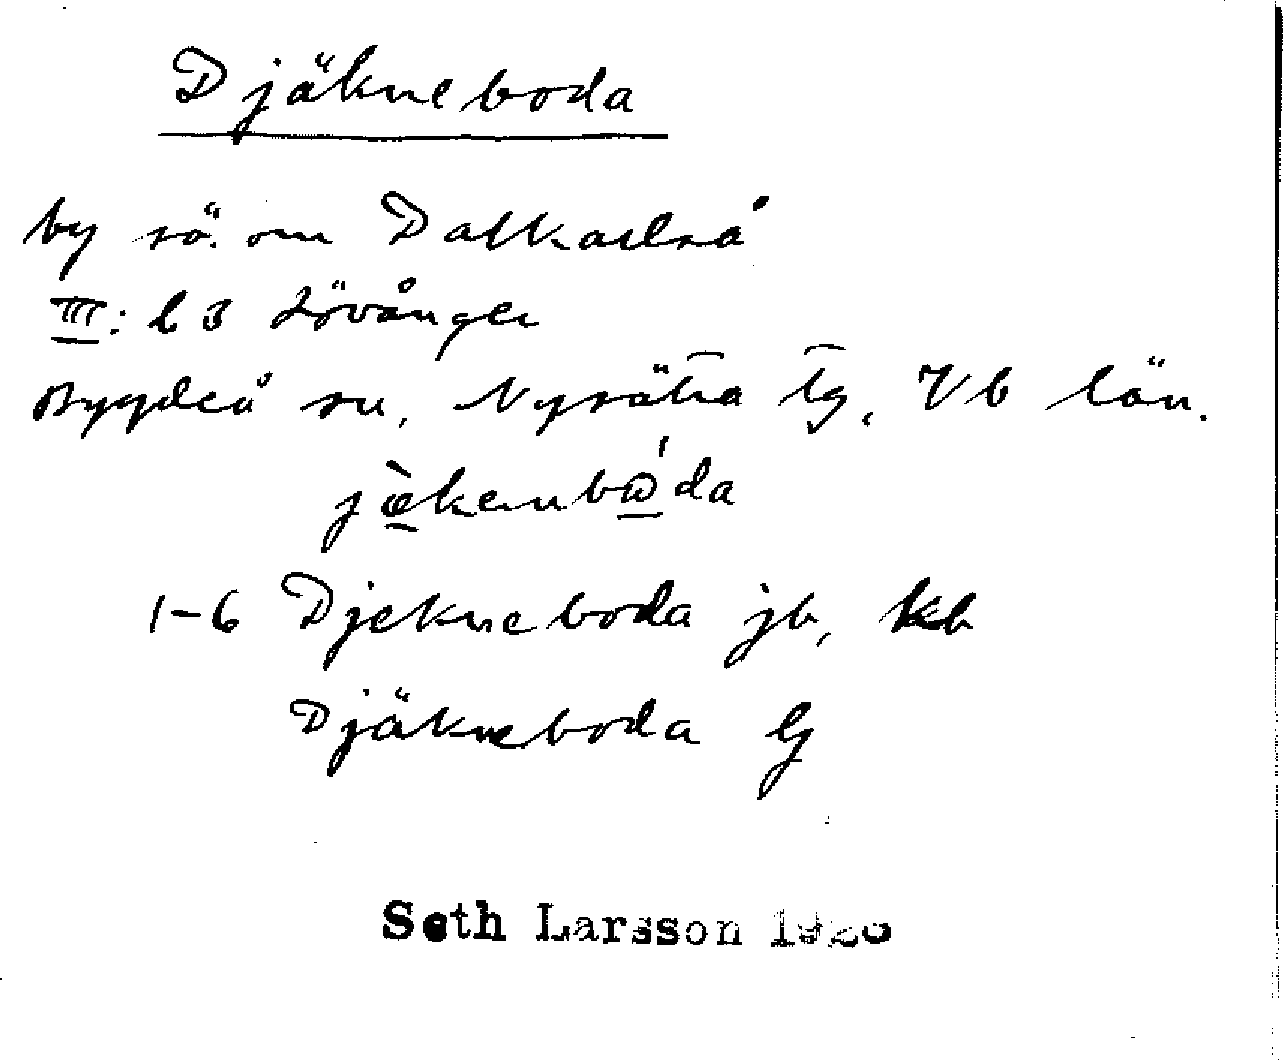 Djäkneboda
by sö. om Dalkarlså
III: b 3 Lövånger
Bygdeå sn, Nysätra tg, Vb län.
jæ̀kenbώ̲da
1-6 Djekneboda jb, kb
Djäkneboda G
Seth Larsson